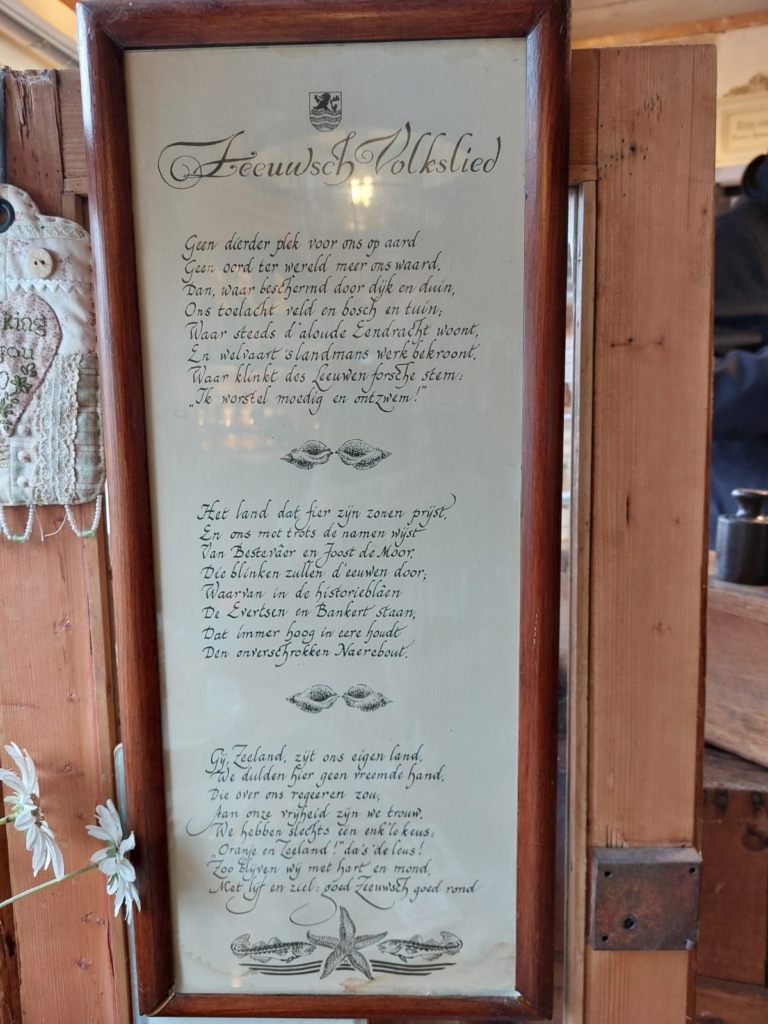 Zeeuwsch Volkslied
Geen dierder plek voor ons op aard
Geen oord ter wereld meer ons waard,
Dan, waar beschermd door dijk en duin,
Ons toelacht veld en bosch en tuin;
Waar steeds d'aloude Eendracht woont,
En welvaart 's landmans werk bekroont,
Waar klinkt des Leeuwen forsche stem:
"Ik worstel moedig en ontzwem!"
Het land dat fier zijn zonen prijst,
En ons met trots de namen wijst
Van Bestevâer en Joost de Moor,
Die blinken zullen d'eeuwen door;
Waarvan in de historieblâen
De Evertsen en Bankert staan,
Dat immer hoog in eere houdt
Den onverschrokken Naerebout.
Gij, Zeeland, zijt ons eigen land,
We dulden hier geen vreemde hand,
Die over ons regeeren zou,
Aan onze vrijheid zijn we trouw.
We hebben slechts één enk'le keus:
"Oranje en Zeeland!" da's de leus!
Zoo blijven wij met hart en mond,
Met lijf en ziel: goed Zeeuwsch goed rond
king
you